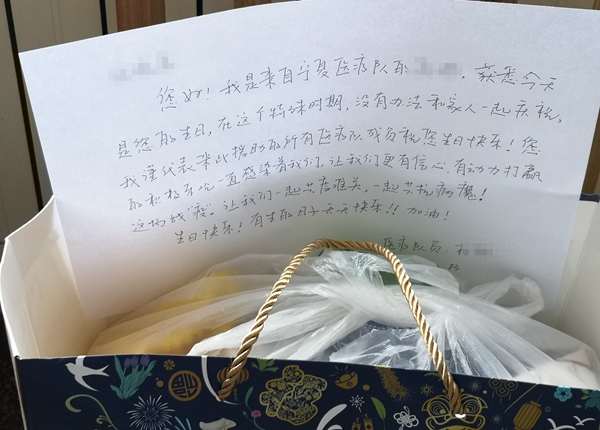 您好！我是来自宁夏医疗队的，获悉今天
是您的生日，在这个特殊时期，没有办法和家人一起庆祝，
我谨代表来此援助的所有医疗队成员祝您生日快乐！您
的积极乐观一直感染着我们，让我们更有信心、有动力打赢
这场战“疫”。让我们一起共度难关，一起共抗病魔！
生日快乐！有生的日子天天快乐！！加油！
医疗队员：